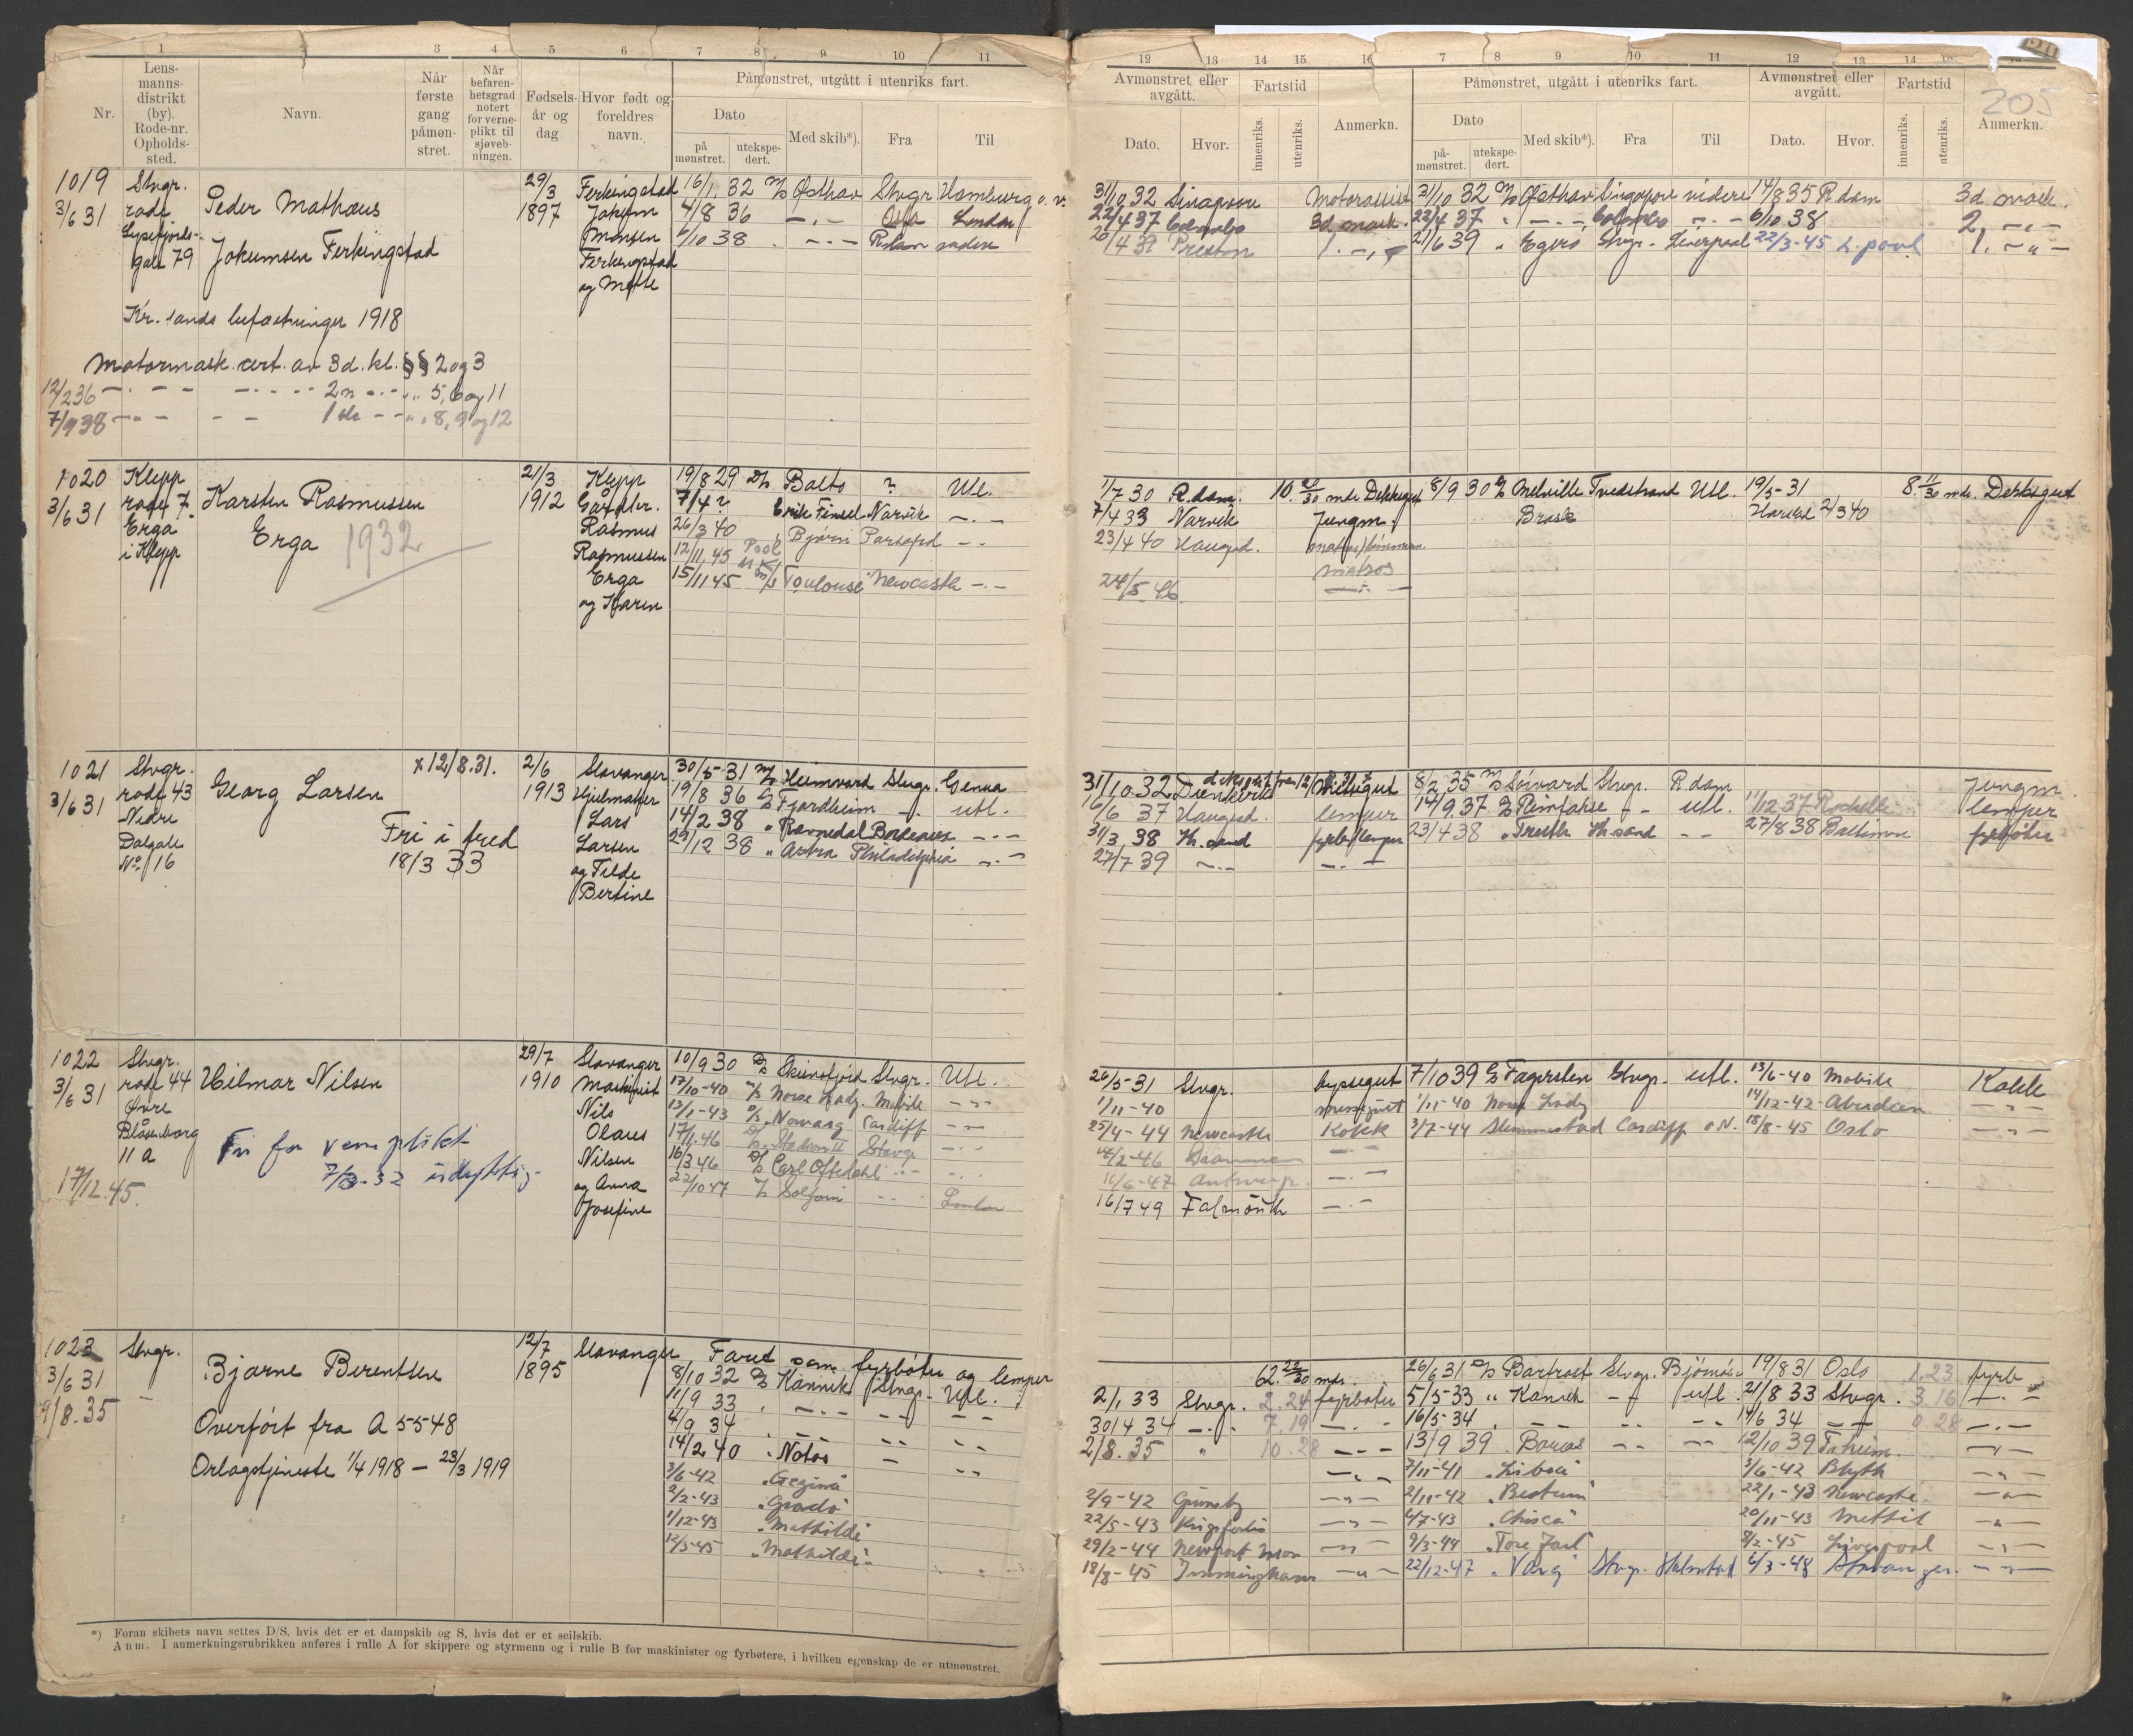 1 2 3 4 5 6 7 8 9 10 11
Nr.
Lens-
manns-
distrikt
(by).
Rode-nr.
Opholds-
sted.
Navn.
Når
første
gang
påmøn-
stret.
Når
befaren-
hetsgrad
notert
for verne-
plikt til
sjøveb-
ningen.
Fødsels-
år og
dag
Hvor født og
foreldres
navn.
Påmønstret, utgått i utenriks fart.
Dato
på
mønstret.
utekspe-
dert.
Med skib*).
Fra
Til
1019
3/6 31
Stvgr.
rode
Lysefjords-
gate 79
Peder Mathæus
Jokumsen Ferkingstad
29/3
1897
Ferkingstad
Jokum
Monsen
Ferkingstad
og Mette
16/1 32 M/S Østhav Stvgr. Hamburg o. v.
4/8 36 — " — London
6/10 38 — " — R.dam videre
Kr.sands befæstninger 1918
Motormask. cert. av 3d. kl. §§ 2 og 3
12/2 36 — " — 2n — " — 5, 6 og 11
7/9 38 — " — 1ste — " — 8, 9 og 12
1020
3/6 31
Klepp
rode 7.
Erga
i Klepp
Karsten Rasmussen
Erga 1932
21/3
1912
Klepp
Gårdbr.
Rasmus
Rasmussen
Erga
og Karen
19/8 29 D/S Balto ? Utl.
7/4 ? Erik Frisel Narvik — " —
26/3 40 " Bjørn — " —
12/11 45 Pool
15/11 45 M/S Toulouse Newcastle — " —
1021
3/6 31
Stvgr.
rode 43
Nedre
Dalgate
No. 16
Georg Larsen
Fri i fred
18/3 33
x 12/8.31.
2/6
1913
Stavanger
Hjulmaker
Lars
Larsen
og Tilde
Bertine
30/5 31 M/S Heimvard Stvgr. Genua
19/8 36 D/S Fjordheim — " — utl.
14/2 38 " Ravnedal Bordeaux — " —
29/12 38 " Astra Philadelphia — " —
1022
3/6 31
17/12.45.
Stvgr.
rode 44
Øvre
Blåsenborg
11 a
Hilmar Nilsen
Fri for verneplikt
7/3-32 udyktig
29/7
1910
Stavanger
Maskinist
Nils
Olaus
Nilsen
og Anna
Josefine
10/9 30 D/S Skiensfjord Stvgr. Utl.
17/10-40 M/S Norse Lady. Mobile — " —
13/1-43 D/S Norvarg Cardiff — " —
17/1.46 D/S Stadion II Stavgr — " —
16/3 46 D/S Carl Oftedahl — " —
22/10 47 M/S Solfonn — " — London
1023
3/6 31
9/8.35
Stvgr.
Bjarne Berentsen
Overført fra A 5548
Orlogstjeneste 1/4 1918 — 23/3 1919
12/7
1895
Stavanger
Faret som fyrbøter og lemper
8/10 32 D/S Kannik Stvgr. Utl.
11/9 33 " — " — — " — — " —
4/9 34 — " — — " — — " —
14/2 40 " Notos — " —
3/6-42 "Gezina"
2/2-43 "Grado"
1/12-43 "Mathilde"
12/5-45 "Mathilde"
*) Foran skibets navn settes D/S, hvis det er et dampskib og S, hvis det er et seilskib.
Anm. I anmerkningsrubrikken anføres i rulle A for skippere og styrmenn og i rulle B for maskinister og fyrbøtere, i hvilken egenskap de er utmønstret.
12 13 14 15 16 7 8 9 10 11 12 13 14
205
Avmønstret eller
avgått.
Dato.
Hvor.
Fartstid
innenriks.
utenriks.
Anmerkn.
Påmønstret, utgått i utenriks fart.
Dato
på-
mønstret.
utekspe-
dert.
Med skib*).
Fra
Til
Avmønstret eller
avgått.
Dato.
Hvor.
Fartstid
innenriks.
utenriks.
Anmerkn.
31/10 32 Singapore Motorassist 31/10 32 M/S Østhav Singapore videre 14/8 35 R.dam 3d mask.
22/4 37 Colombo 3d mask. 22/4 37 " — " — Colombo — " — 6/10 38 2, — " —
26/4 39 Preston 1. — " — 21/6 39 " Egerø Stvgr. Liverpool 22/3-45 L.pool 1. — " —
1/7 30 R.dam. 10. /30 mdr Dekksgut 8/9 30 Melville Tvedstrand Utl. 19/5-31 8. 11/30 mdr. Dekksgut
7/4 33 Narvik Jungm. Brask 2/3 40
23/4 40 Haugsd.
matros
24/5.46 — " —
31/10 32 Dünkerk 8/2 35 M/S Sørvard Stvgr. R.dam Jungm.
16/6 37 Haugsd. lemper 14/9.37 — " — utl. 11/12 37 Rochelle lemper
31/3 38 Kr.sand fyrb/lemper 23/4 38 " Truth Kr.sand — " — 27/8 38 Baltimore fyrbøter
27/7 39 — " — — " —
26/5-31 Stvgr. byssegut 7/10 39 D/S Fagersten Stvgr. utl. 13/6-40 Mobile Kokk
1/11-40 messegutt 1/11-40 Norse Lady 14/12-42 Aberdeen — " —
25/4-44 Newcastle Kokk 3/7-44 Slemmestad Cardiff o.N. 18/8-45 Oslo — " —
14/2-46 Drammen — " —
11/6-47 Antwerp. — " —
16/7 49 Falmouth — " —
62. 22/30 mdr. 26/6 31 D/S Barfrost Stvgr. Bjørnøia 19/8 31 Oslo 1.23 fyrb
2/1 33 Stvgr. 2.24 fyrbøter 5/5-33 " Kannik — " — utl. 21/8 33 Stvgr. 3.16 — " —
30/4 34 — " — 7.19 — " — 16/5-34 " — " — — " — 14/6 34 — " — 0.28 — " —
2/8.35 " 10.28 — " — 13/9 39 " Borías — " — — " — 12/10 39 T.heim. — " —
— " — 7/11-41 "Lisbeth" 3/6-42 Blyth — " —
2/9-42 Grimsby — " — 2/11-42 "Bestum" 22/1-43 Newcastle — " —
22/5-43 — " — 4/7-43 "Chisca" 20/11-43 Methil — " —
29/2-44 Newport Mon — " — 9/3-44 "Tore Jarl" 8/2-45 Liverpool — " —
18/8-45 Immingham — " — 22/12-47 "Varg" Stvgr. Halmstad 6/3-48 Stavanger. — " —